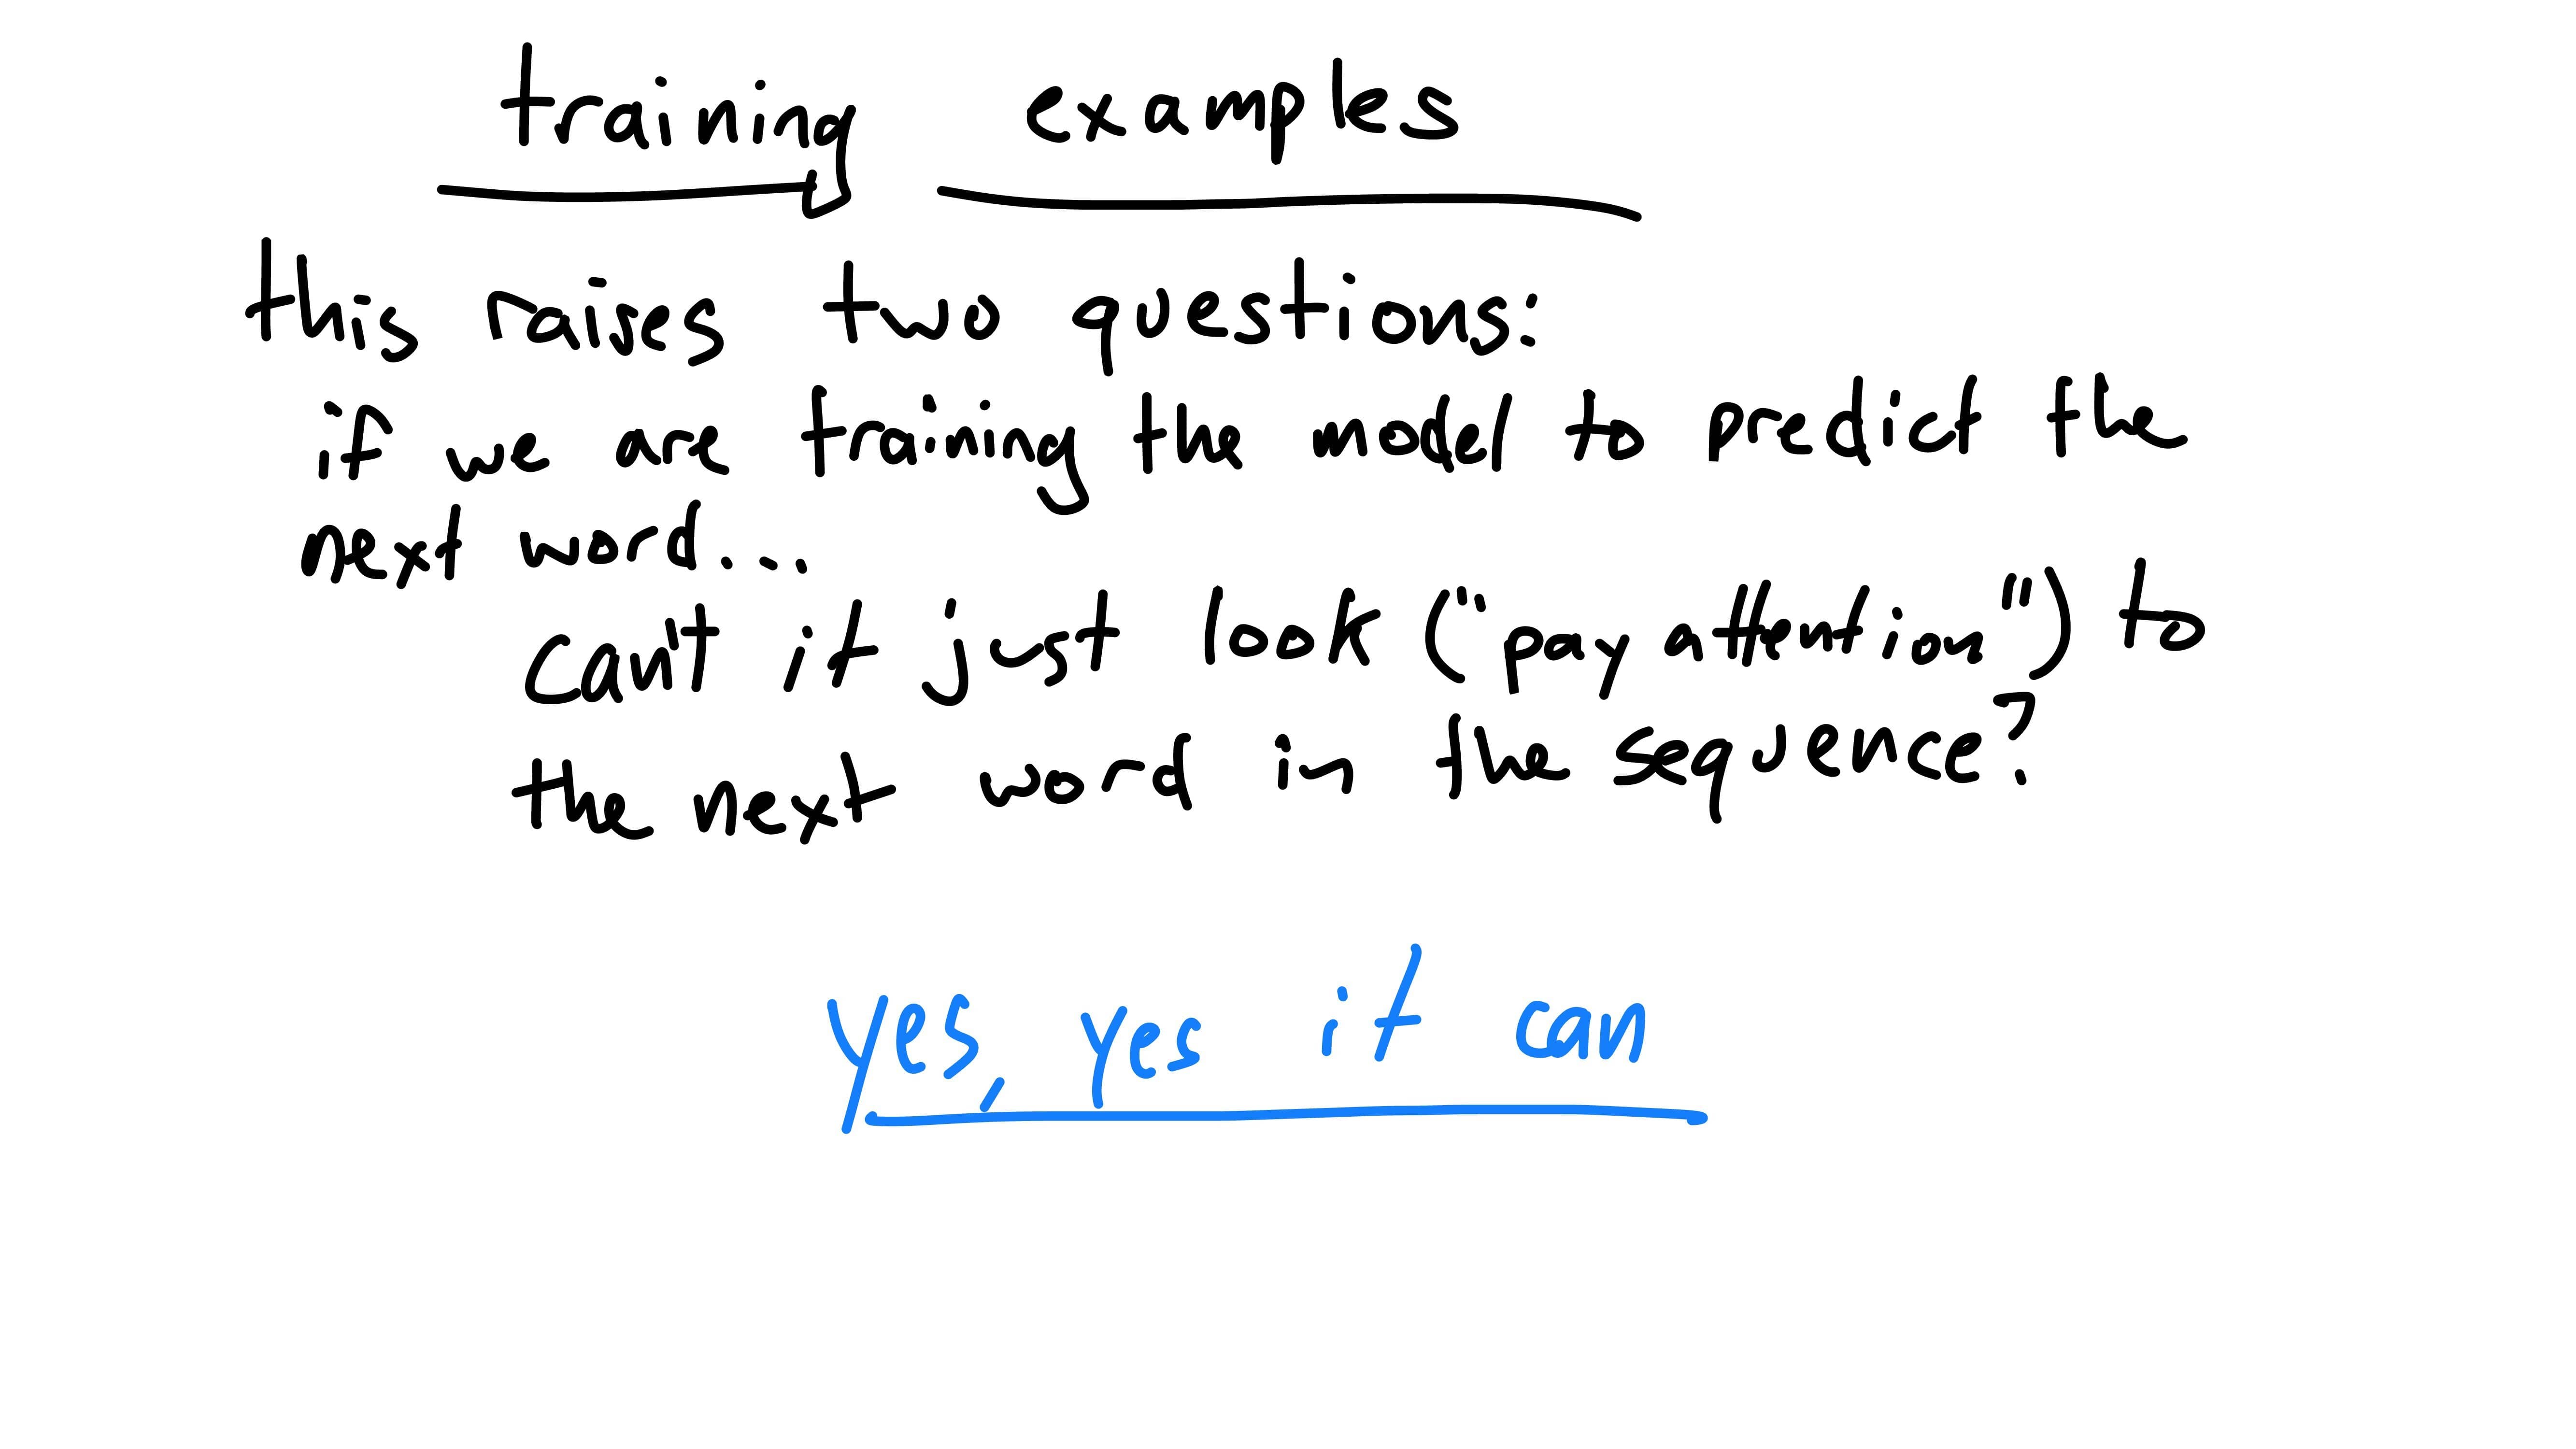 training examples
this raises two questions:
if we are training the model to predict the
next word...
can't it just look ("pay attention") to
the next word in the sequence?
yes, yes it can